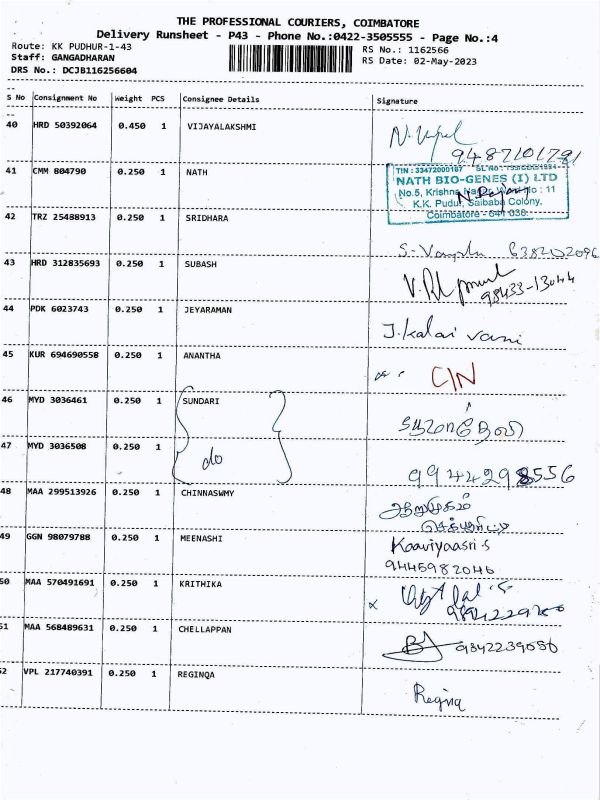 THE PROFESSIONAL COURIERS, COIMBATORE
Delivery Runsheet - P43 - Phone No.:0422-3505555 - Page No.:4
Route: KK PUDHUR-1-43
RS No.: 1162566
Staff: GANGADHARAN
RS Date: 02-May-2023
DRS No.: DCJB116256604
S No Consignment No Weight PCS Consignee Details Signature
40 HRD 50392064 0.450 1 VIJAYALAKSHMI
41 CMM 804790 0.250 1 NATH
NATH BIO-GENES (I) LTD
K.K. Pudur, Saibaba Colony,
Coimbatore - 641 038.
42 TRZ 25488913 0.250 1 SRIDHARA
43 HRD 312835693 0.250 1 SUBASH
98433-13044
44 PDK 6023743 0.250 1 JEYARAMAN
J.kalai vani
45 KUR 694690558 0.250 1 ANANTHA
C/N
46 MYD 3036461 0.250 1 SUNDARI
47 MYD 3036508 0.250 1 do
9944298556
48 MAA 299513926 0.250 1 CHINNASWMY
ஆறுமுகம்
49 GGN 98079788 0.250 1 MEENASHI Kaaviyaasri.s
9445982046
50 MAA 570491691 0.250 1 KRITHIKA
51 MAA 568489631 0.250 1 CHELLAPPAN
9842239056
52 VPL 217740391 0.250 1 REGINQA
Regina